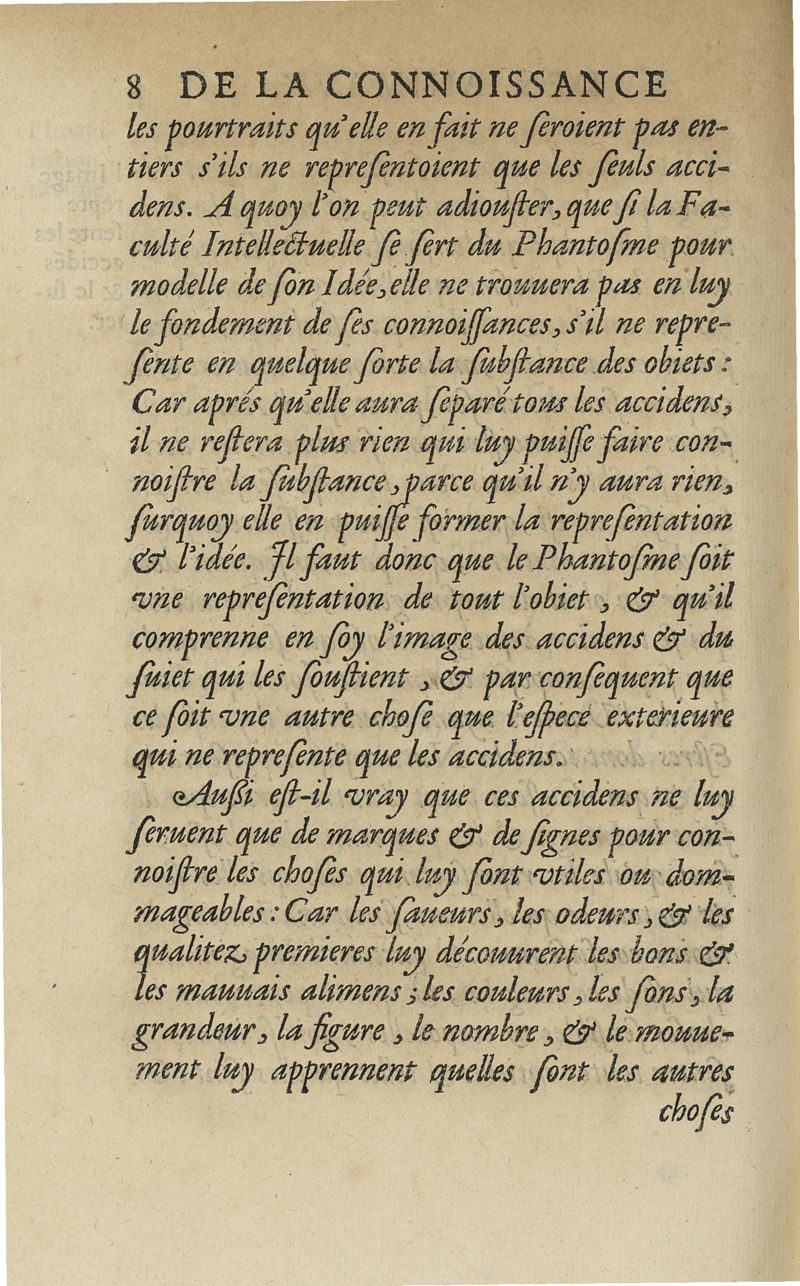 8 DE LA CONNOISSANCE
les pourtraits qu'elle en fait ne ſeroient pas en-
tiers s'ils ne repreſentoient que les ſeuls acci-
dens. A quoy l'on peut adiouſter, que ſi la Fa-
culté Intellectuelle ſe ſert du Phantoſme pour
modelle de ſon Idée, elle ne trouuera pas en luy
le fondement de ſes connoiſſances, s'il ne repre-
ſente en quelque ſorte la ſubſtance des obiets :
Car aprés qu'elle aura ſeparé tous les accidens,
il ne reſtera plus rien qui luy puiſſe faire con-
noiſtre la ſubſtance, parce qu'il n'y aura rien,
ſurquoy elle en puiſſe former la repreſentation
& l'idée. Il faut donc que le Phantoſme ſoit
vne repreſentation de tout l'obiet, & qu'il
comprenne en ſoy l'image des accidens & du
ſuiet qui les ſouſtient, & par conſequent que
ce ſoit vne autre choſe que l'eſpece exterieure
qui ne repreſente que les accidens.
Auſſi eſt-il vray que ces accidens ne luy
ſeruent que de marques & de ſignes pour con-
noiſtre les choſes qui luy ſont vtiles ou dom-
mageables : Car les ſaueurs, les odeurs, & les
qualitez premieres luy découurent les bons &
les mauuais alimens ; les couleurs, les ſons, la
grandeur, la figure, le nombre, & le mouue-
ment luy apprennent quelles ſont les autres
choſes